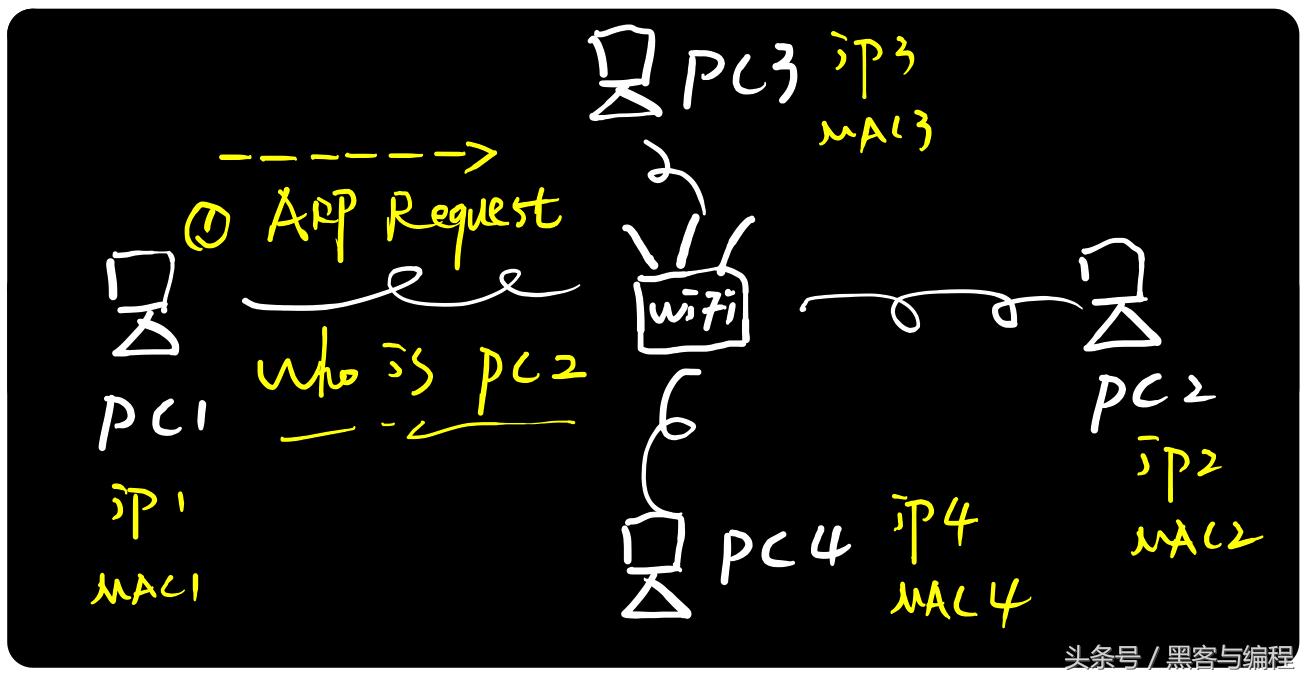 PC3
iP3
MAC3
① ARP Request
WiFi
who is PC2
PC1
iP1
MAC1
PC2
iP2
MAC2
PC4
iP4
MAC4
头条号 / 黑客与编程